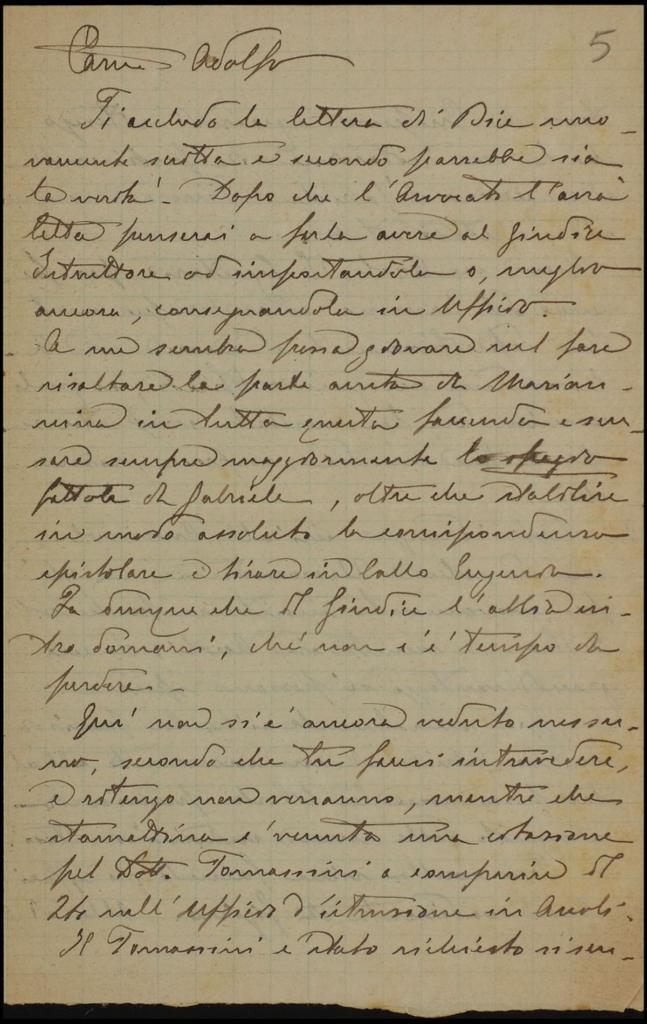 Caro Adolfo
5
Ti accludo la lettera di Bice nuo-
vamente scritta e secondo parrebbe sia
la verità. Dopo che l'Avvocato l'avrà
letta penserai a farla avere al Giudice
Istruttore od impostandola o, meglio
ancora, consegnandola in Ufficio.
A me sembra possa giovare nel fare
risaltare la parte avuta da Marian-
nina in tutta questa faccenda e scu-
sare sempre maggiormente lo sfregio
fattole da Gabriele, oltre che stabilire
in modo assoluto la corrispondenza
epistolare e tirare in ballo Eugenia.
Fa dunque che il Giudice l'abbia en-
tro domani, ché non c'è tempo da
perdere.
Qui non si è ancora veduto nessu-
no, secondo che tu facevi intravedere,
e ritengo non verranno, mentre che
stamattina è venuta una citazione
pel Dott. Tomassini a comparire il
24 nell'Ufficio d'istruzione in Ascoli.
Il Tomassini è stato richiesto